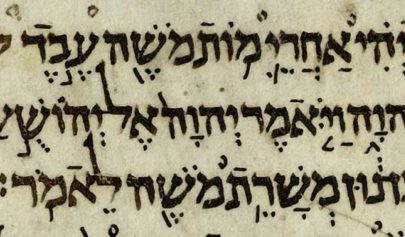 וַיְהִ֗י אַחֲרֵ֛י מ֥וֹת מֹשֶׁ֖ה עֶ֣בֶד
יְהוָ֑ה וַיֹּ֤אמֶר יְהוָה֙ אֶל־יְהוֹשֻׁ֣עַ
נ֔וּן מְשָׁרֵ֥ת מֹשֶׁ֖ה לֵאמֹֽר׃